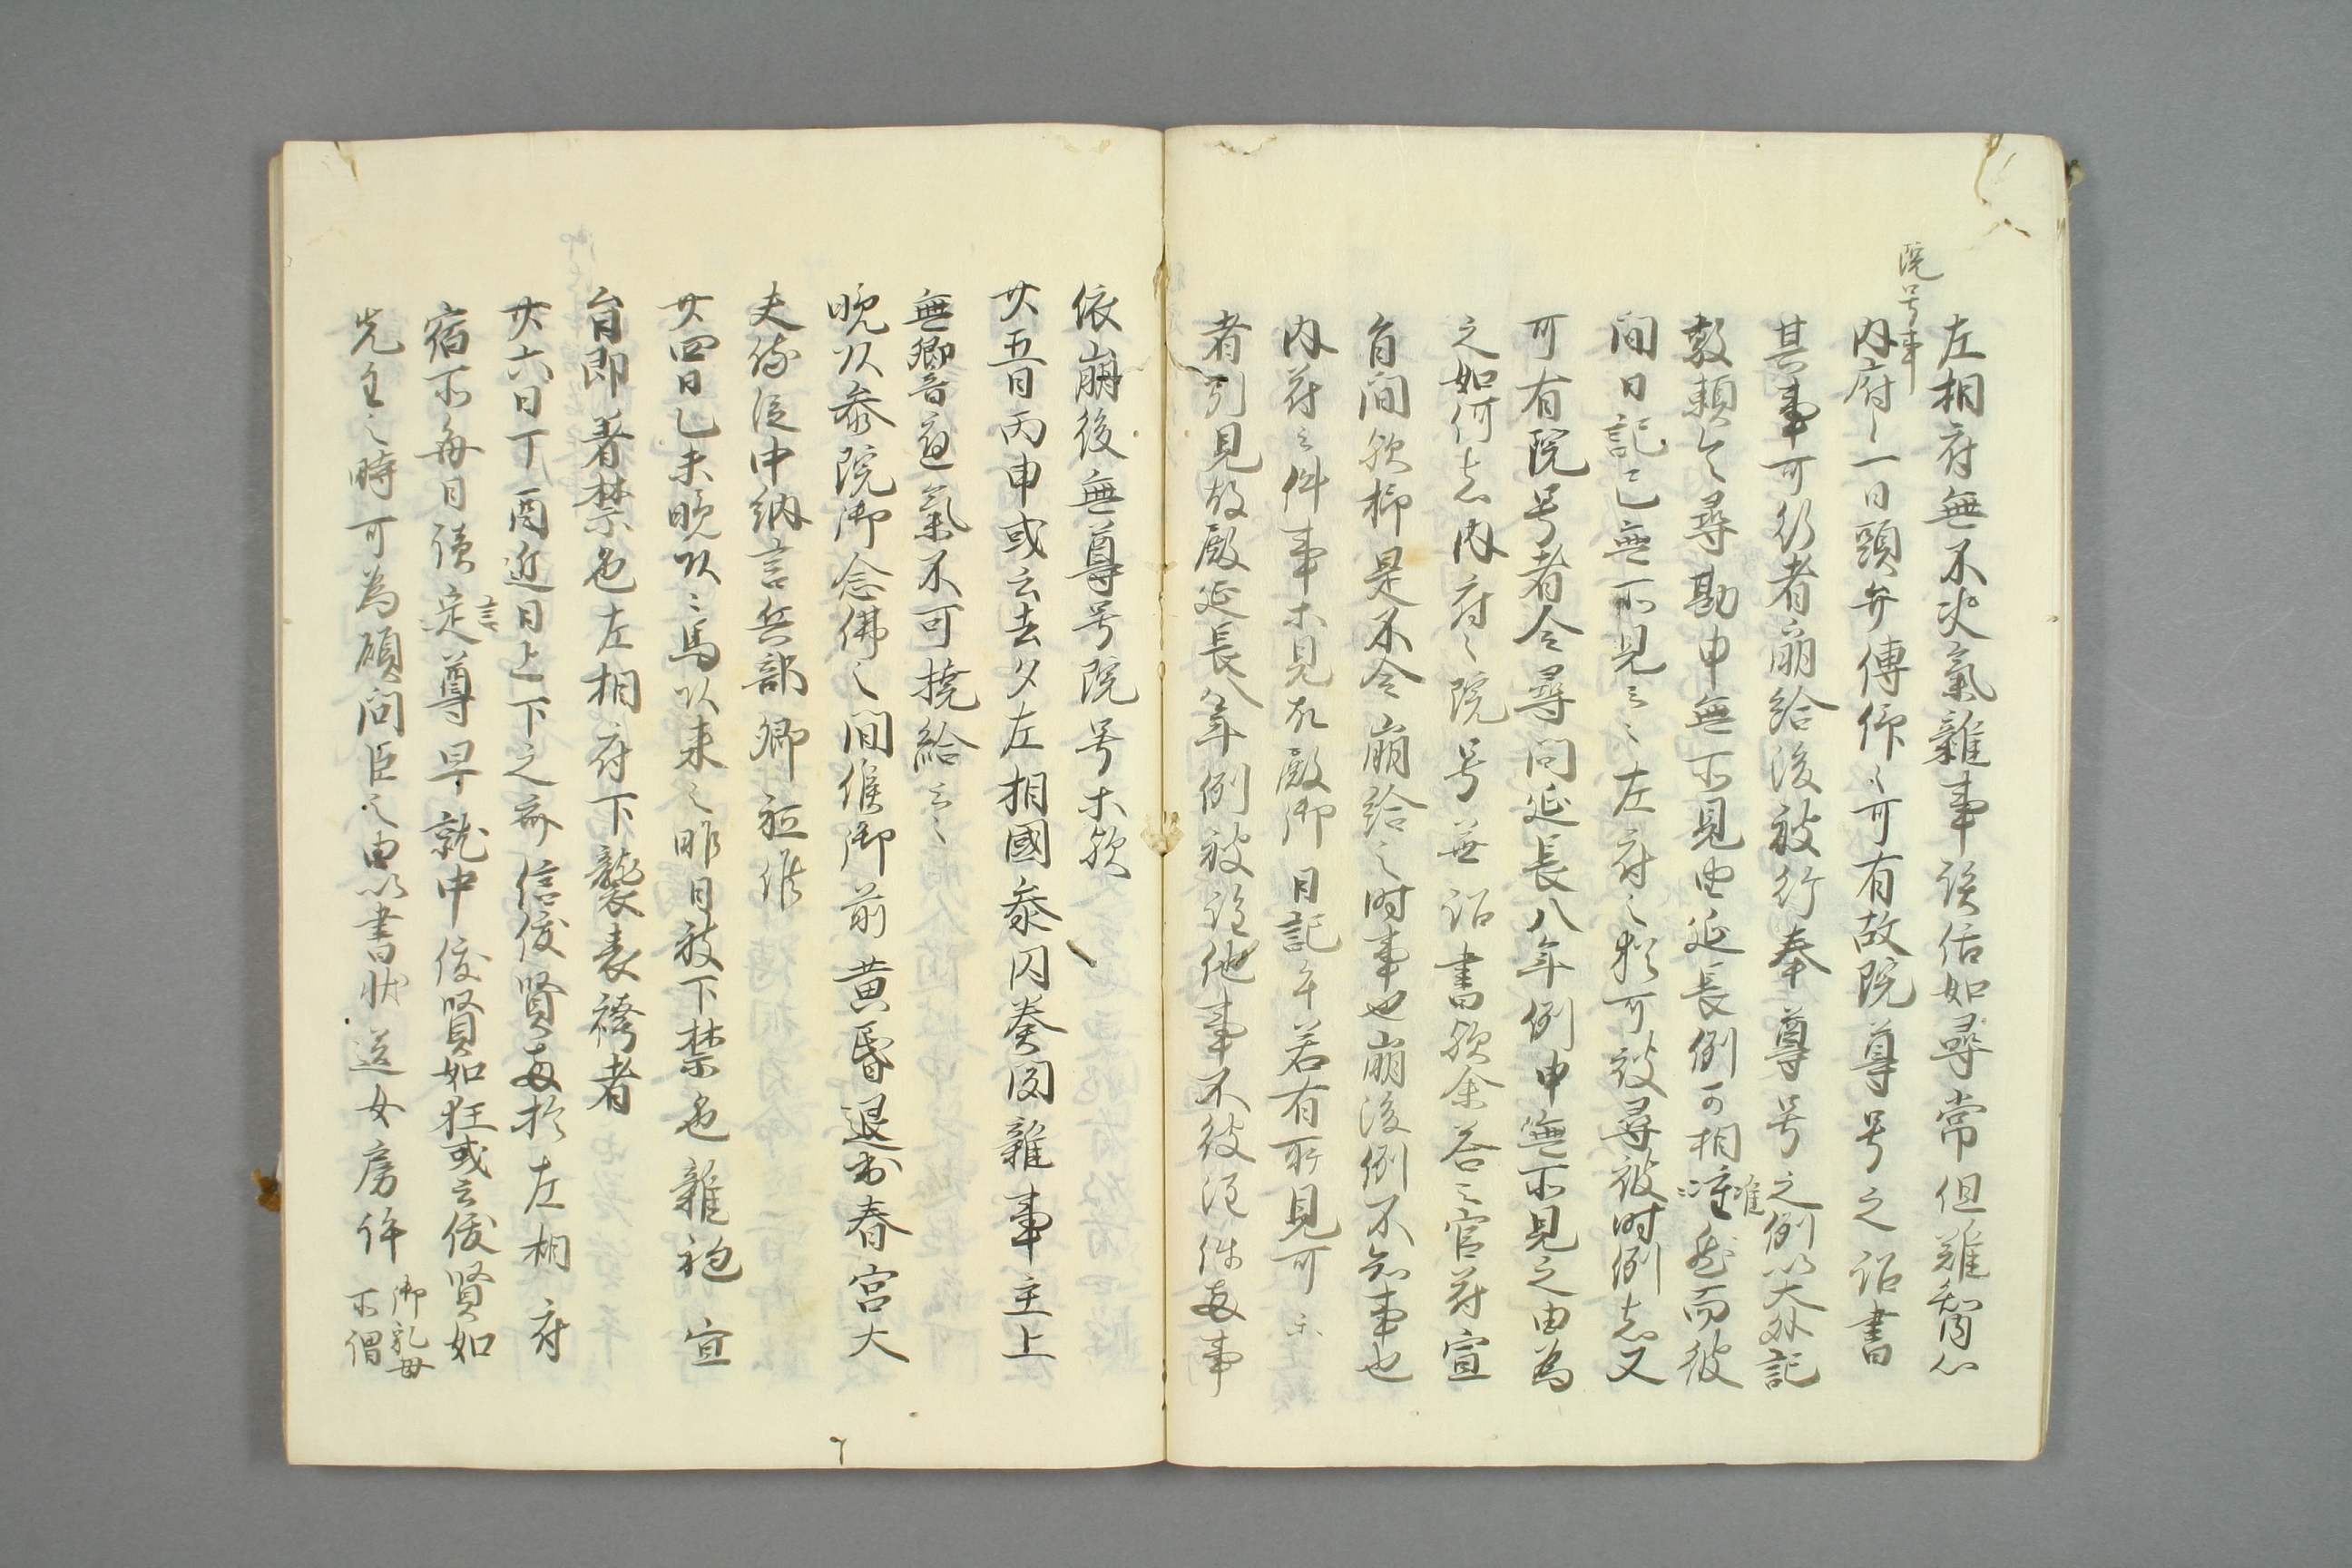 院号事
左相府無不快氣雑事談話如尋常但難知心
内府々一日頭弁傳仰々可有故院尊号之詔書
其事可行者崩給後被行奉尊号之例以大外記
敦頼令尋勘申無所見由延長例可相准然而彼
間日記已無所見云々左府々粗可被尋彼時例者又
可有院号者令尋問延長八年例申無所見之由為
之如何者内府々院号無詔書欤余答云官符宣
旨間欤抑是不令崩給之時事也崩後例不知事也
内府云件事未見故殿御日記乎若有所見可示
者引見故殿延長八年例被注他事不被注件両事
依崩後無尊号院号等欤
廿五日丙申或云去夕左相國参内奏雑事主上
無御音通氣不可捨給云々
晩以参院御念佛之間候御前黄昏退出春宮大
夫侍従中納言兵部卿祗候
廿四日乙未晩以右馬以来云昨日被下禁色雑袍宣
旨即著禁色左相府下襲表袴者
廿六日丁酉近日上下之部信俊賢両於左相府
宿所毎日讒定尊早就中俊賢如狂或云俊賢如
先主之時可為顧問臣之由以書状送女房許御乳母
所謂